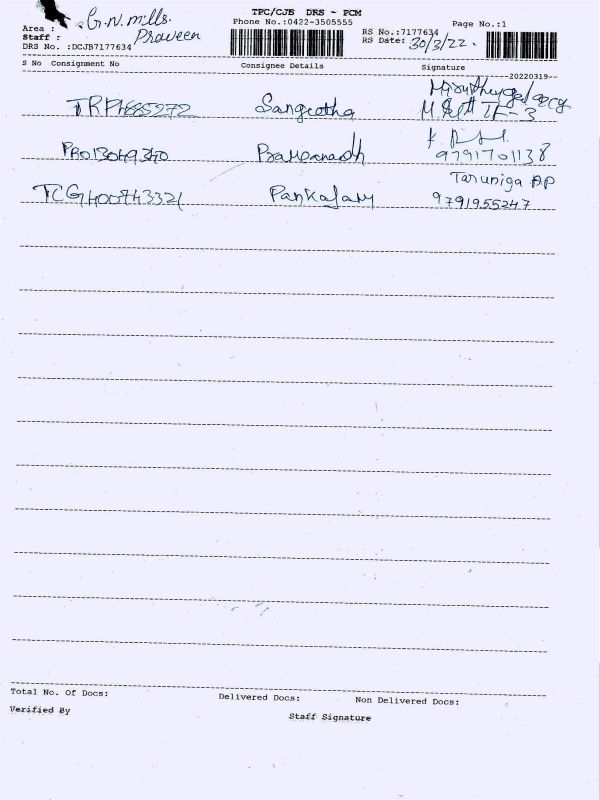 TPC/CJB DRS - PCM
Area : G.N. mills. Phone No.:0422-3505555 Page No.:1
Staff : Praveen RS No.:7177634
DRS No. :DCJB7177634 RS Date: 30/3/22.
S No Consignment No Consignee Details Signature
--20220319--
Sangeetha
9791701138
Taruniga AP
TCG400743321 Pankajam 9791955247
Total No. Of Docs: Delivered Docs: Non Delivered Docs:
Verified By
Staff Signature